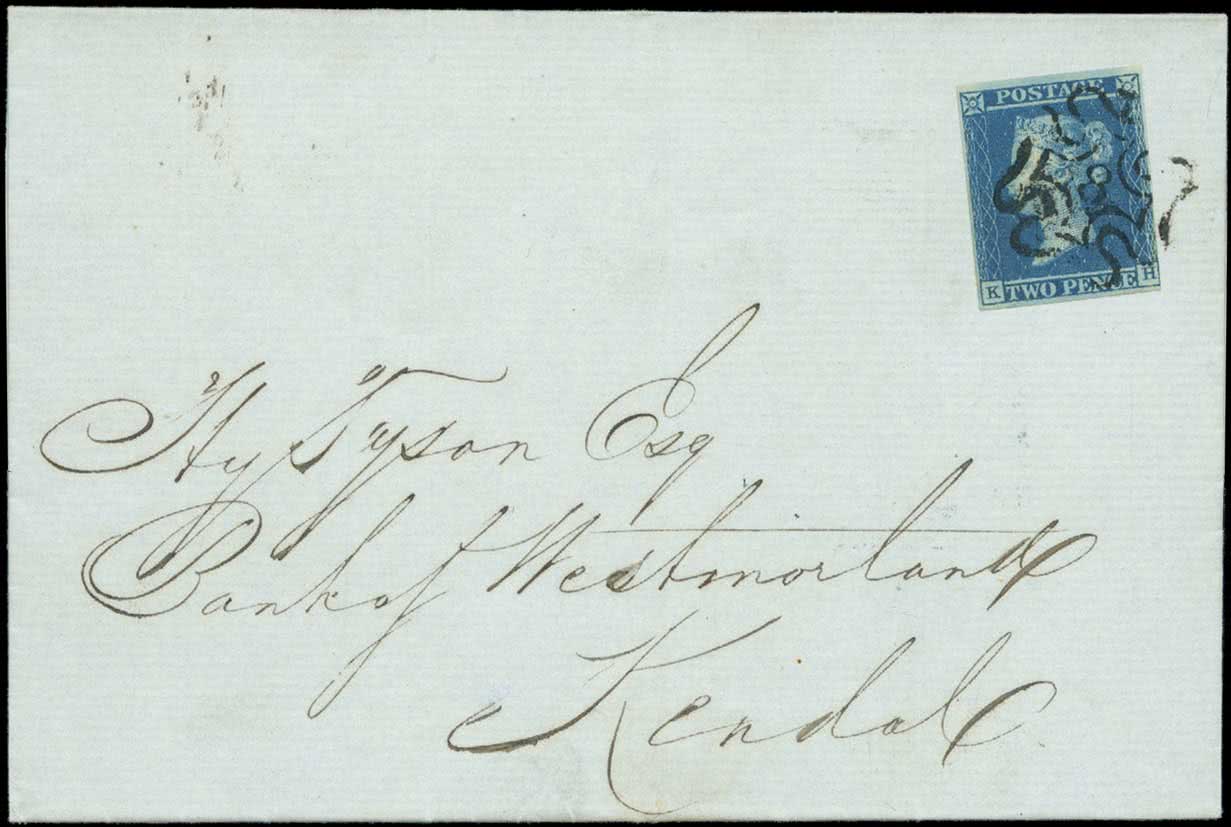 POSTAGE
8
K TWO PENCE H
Hy Tyson Esq
Bank of Westmorland
Kendal